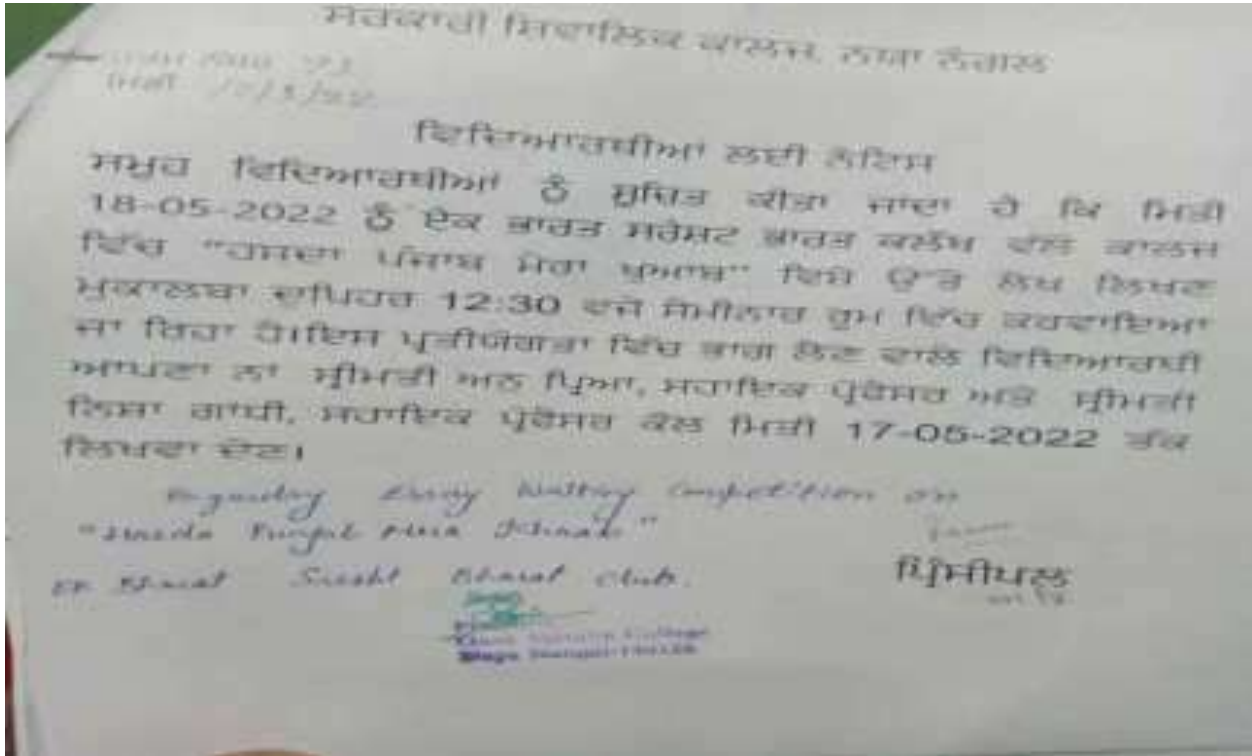 ਸਰਕਾਰੀ ਸ਼ਿਵਾਲਿਕ ਕਾਲਜ, ਨਯਾ ਨੰਗਲ
ਨੰਬਰ 93
ਮਿਤੀ
ਵਿਦਿਆਰਥੀਆਂ ਲਈ ਨੋਟਿਸ
ਸਮੂਹ ਵਿਦਿਆਰਥੀਆਂ ਨੂੰ ਸੂਚਿਤ ਕੀਤਾ ਜਾਂਦਾ ਹੈ ਕਿ ਮਿਤੀ
18-05-2022 ਨੂੰ ਏਕ ਭਾਰਤ ਸਰੇਸ਼ਟ ਭਾਰਤ ਕਲੱਬ ਵੱਲੋਂ ਕਾਲਜ
ਵਿੱਚ "ਹਸਦਾ ਪੰਜਾਬ ਮੇਰਾ ਖੁਆਬ" ਵਿਸ਼ੇ ਉੱਤੇ ਲੇਖ ਲਿਖਣ
ਮੁਕਾਲਬਾ ਦੁਪਿਹਰ 12:30 ਵਜੇ ਸੈਮੀਨਾਰ ਰੂਮ ਵਿੱਚ ਕਰਵਾਇਆ
ਜਾ ਰਿਹਾ ਹੈ।ਇਸ ਪ੍ਰਤੀਯੋਗਤਾ ਵਿੱਚ ਭਾਗ ਲੈਣ ਵਾਲੇ ਵਿਦਿਆਰਥੀ
ਆਪਣਾ ਨਾਂ ਸ੍ਰੀਮਤੀ ਅਨੂ ਪ੍ਰਿਆ, ਸਹਾਇਕ ਪ੍ਰੋਫੈਸਰ ਅਤੇ ਸ੍ਰੀਮਤੀ
ਲਿਸ਼ਾ ਗਾਂਧੀ, ਸਹਾਇਕ ਪ੍ਰੋਫੈਸਰ ਕੋਲ ਮਿਤੀ 17-05-2022 ਤੱਕ
ਲਿਖਵਾ ਦੇਣ।
Regarding Essay Writing Competition on
"Hasda Punjab Mera Khuaab"
Ek Bharat Sresht Bharat Club.
ਪ੍ਰਿੰਸੀਪਲ